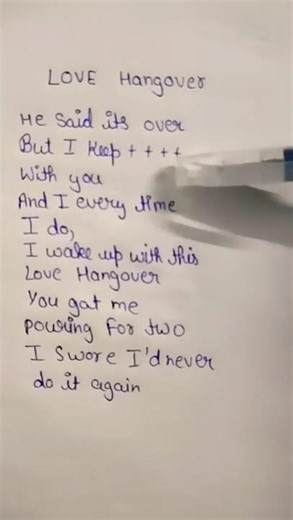 LOVE Hangover
He Said its over
But I Keep + + + +
With you
And I every time
I do,
I wake up with this
Love Hangover
You gat me
pouring for two
I Swore I'd never
do it again